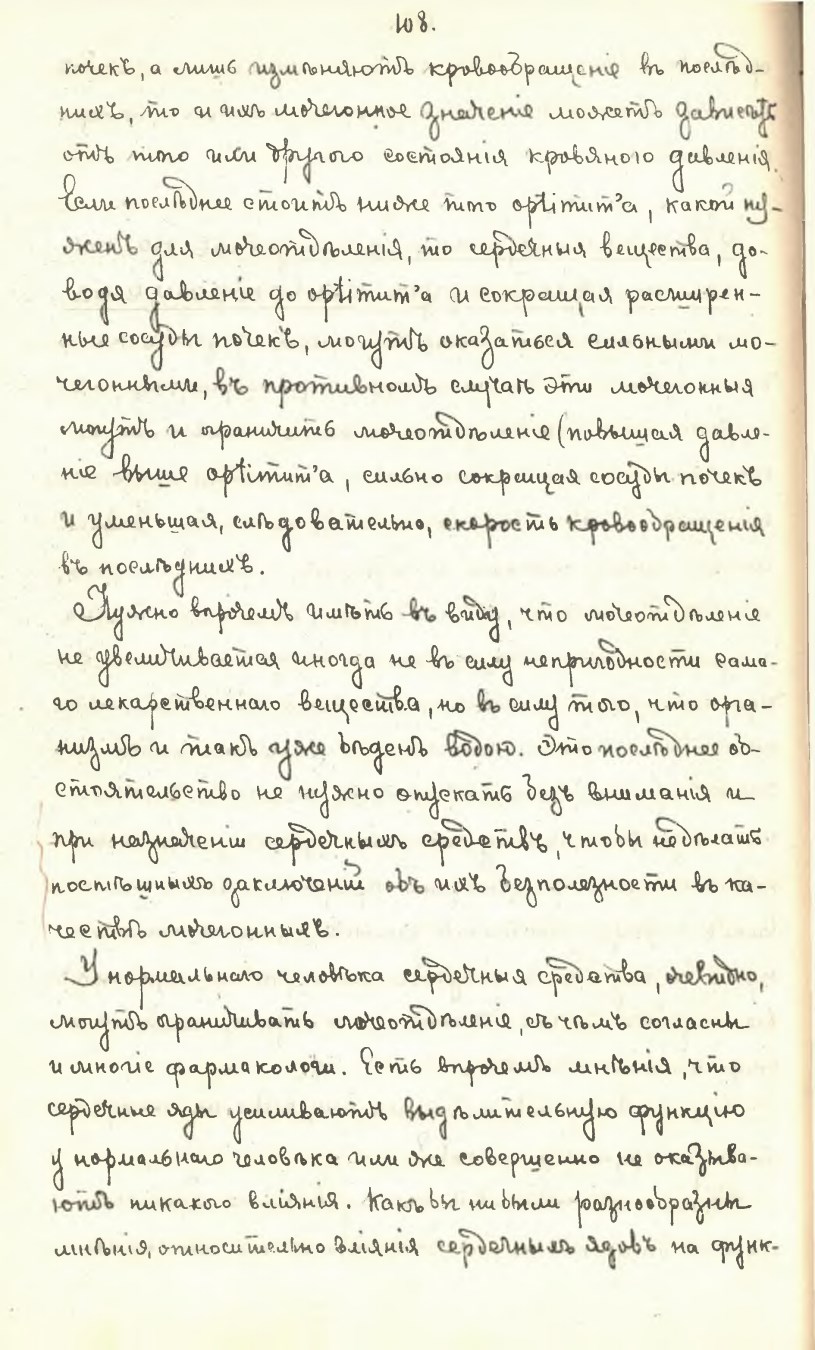 108.
почекъ, а лишь измѣняютъ кровообращеніе въ послѣд-
нихъ, то и ихъ мочегонное значеніе можетъ зависѣть
отъ того или другого состоянія кровяного давленія.
Если послѣднее стоитъ ниже того optimum'a, какой ну-
женъ для мочеотдѣленія, то сердечныя вещества, до-
водя давленіе до optimum'a и сокращая расширен-
ные сосуды почекъ, могутъ оказаться сильными мо-
чегонными, въ противномъ случаѣ эти мочегонныя
могутъ и ограничить мочеотдѣленіе (повышая давле-
ніе выше optimum'a, сильно сокращая сосуды почекъ
и уменьшая, слѣдовательно, скорость кровообращенія
въ послѣднихъ.
Нужно впрочемъ имѣть въ виду, что мочеотдѣленіе
не увеличивается иногда не въ силу непригодности сама-
го лекарственнаго вещества, но въ силу того, что орга-
низмъ и такъ уже бѣденъ водою. Это послѣднее об-
стоятельство не нужно опускать безъ вниманія и
при назначеніи сердечныхъ средствъ, чтобы не дѣлать
поспѣшныхъ заключеній объ ихъ безполезности въ ка-
чествѣ мочегонныхъ.
У нормальнаго человѣка сердечныя средства, очевидно,
могутъ ограничивать мочеотдѣленіе, съ чѣмъ согласны
и многіе фармакологи. Есть впрочемъ мнѣнія, что
сердечные яды усиливаютъ выдѣлительную функцію
у нормальнаго человѣка или же совершенно не оказыва-
ютъ никакого вліянія. Какъ бы ни были разнообразны
мнѣнія, относительно вліянія сердечныхъ ядовъ на функ-